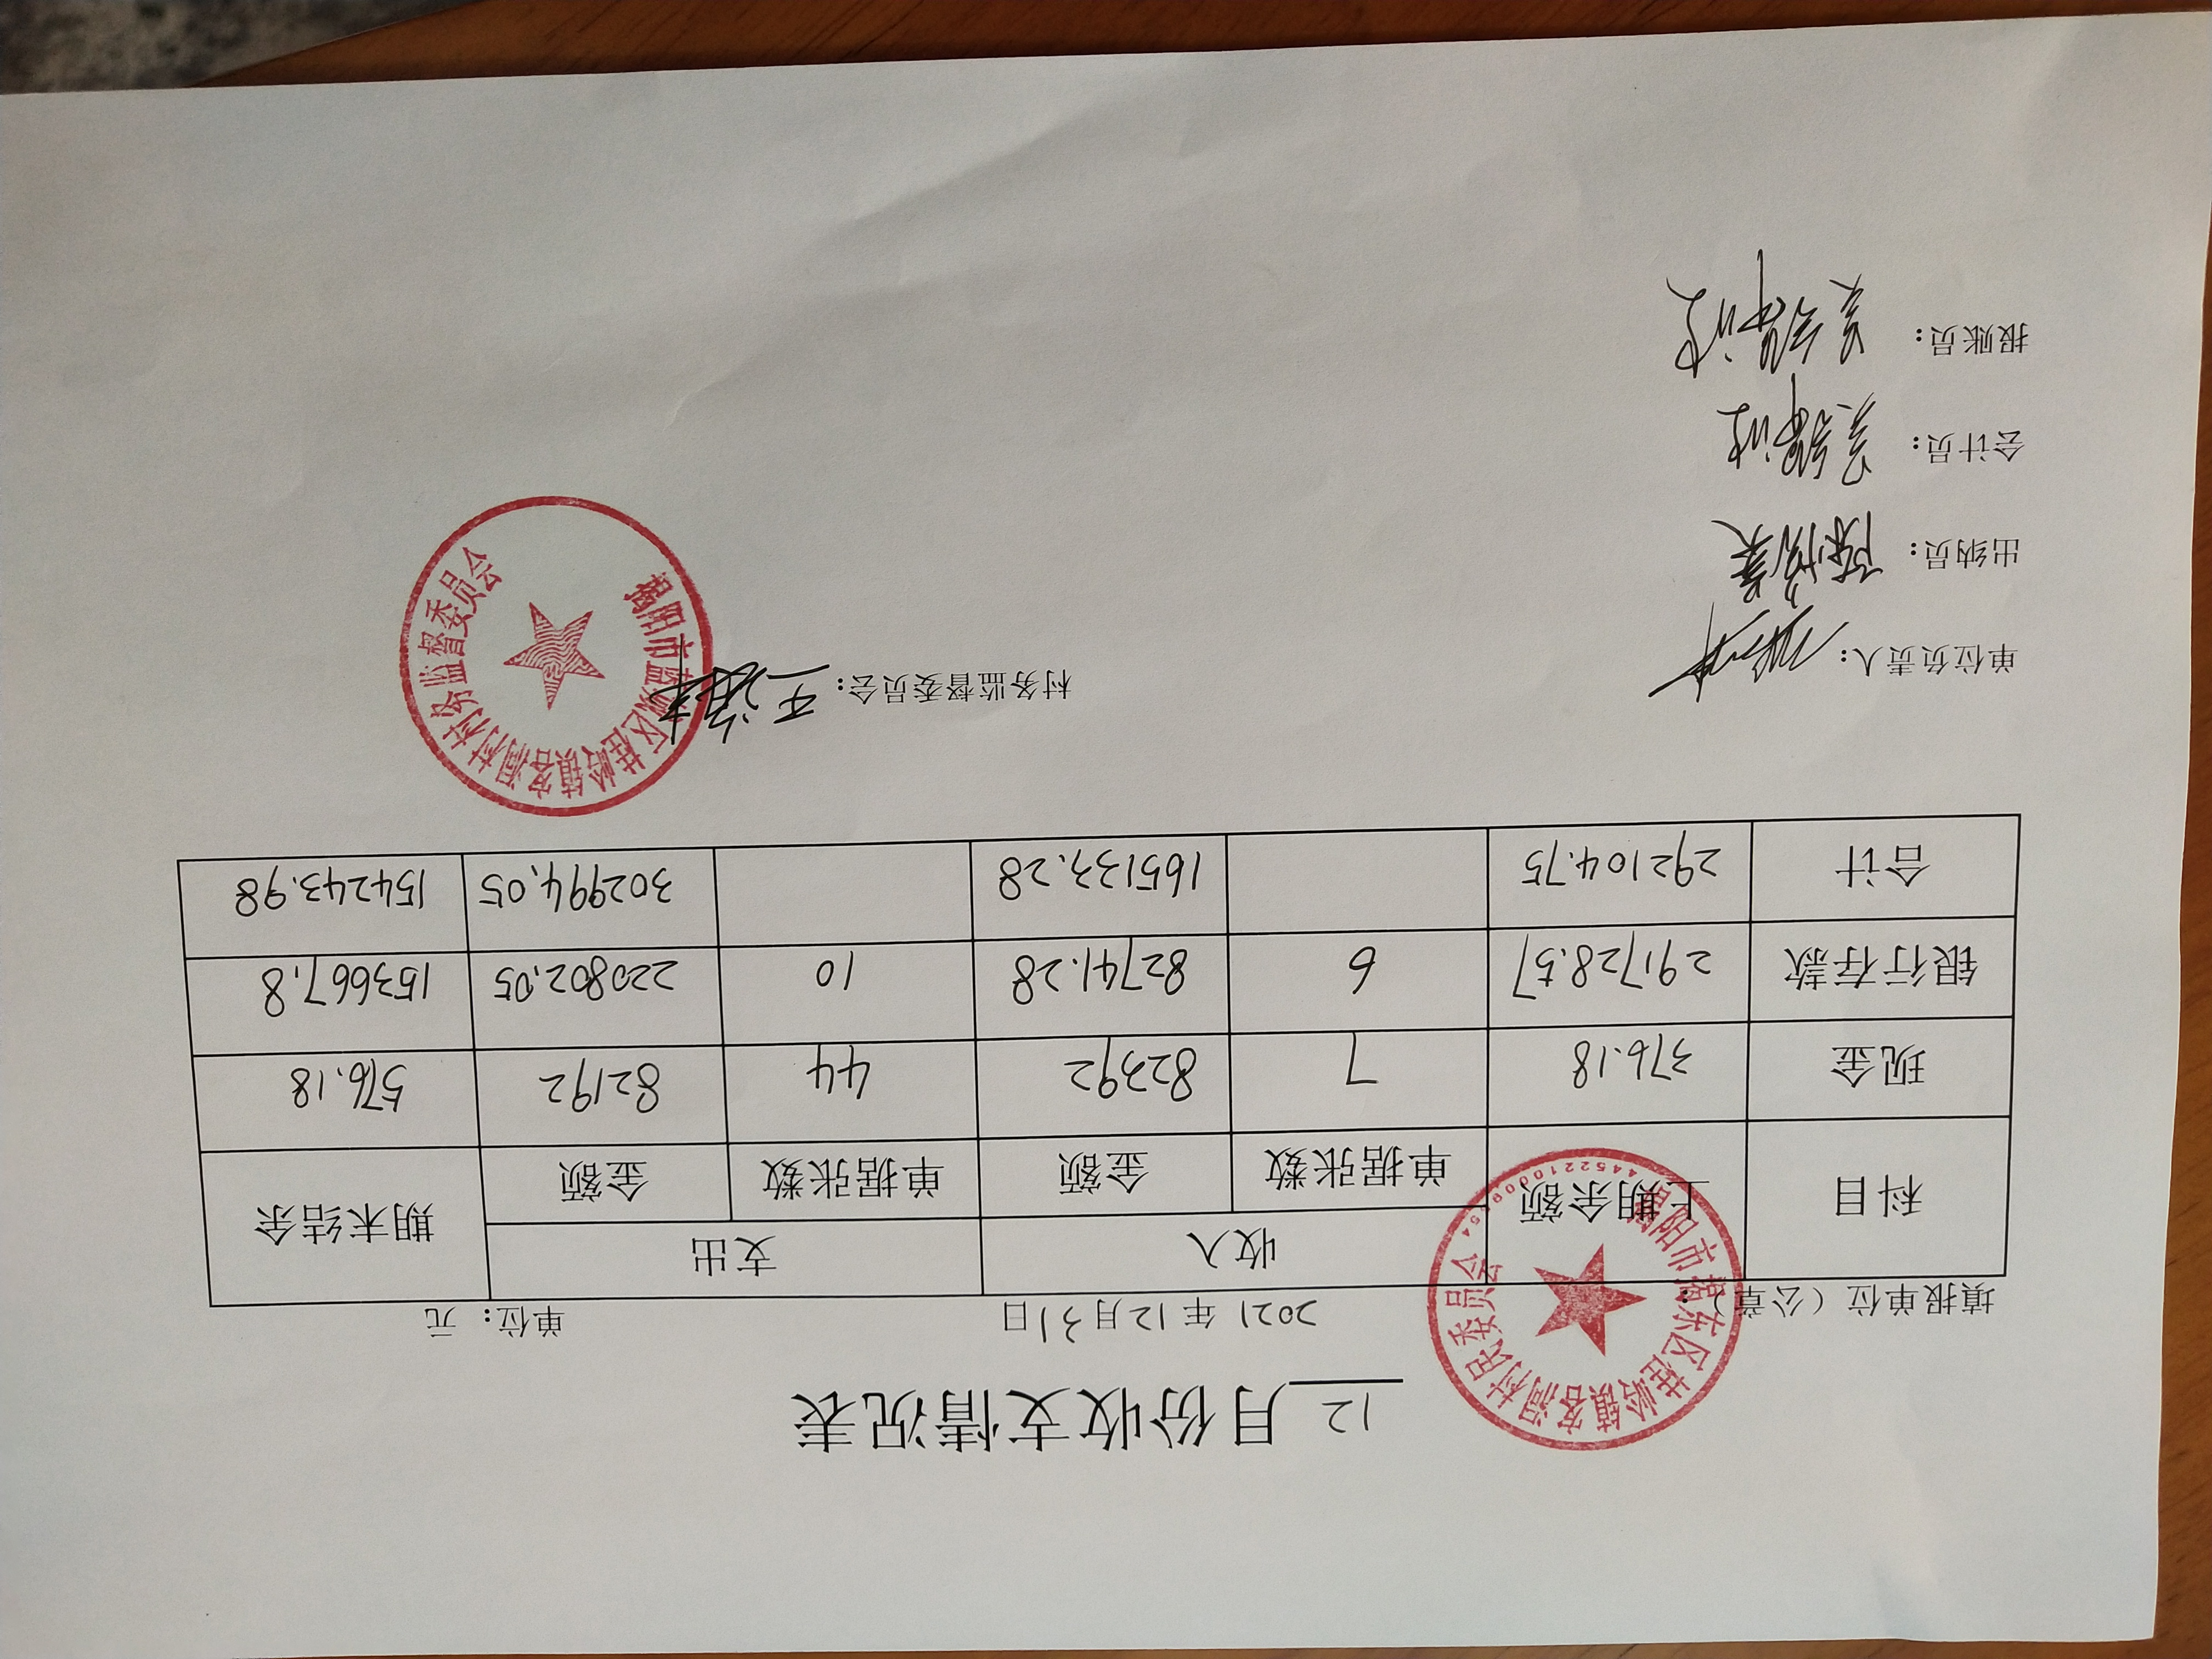 12月份收支情况表
填报单位（公章）： 2021年12月31日 单位：元
科目 上期余额 收入 支出 期末结余
单据张数 金额 单据张数 金额
现金 376.18 7 82392 44 82192 576.18
银行存款 291728.57 6 82741.28 10 220802.05 153667.8
合计 292104.75 165133.28 302994.05 154243.98
揭阳市揭东区桂岭镇客洞村民委员会
单位负责人： 村务监督委员会：
揭阳市蓝城区桂岭镇客洞村村务监督委员会
出纳员：
会计员：
报账员：